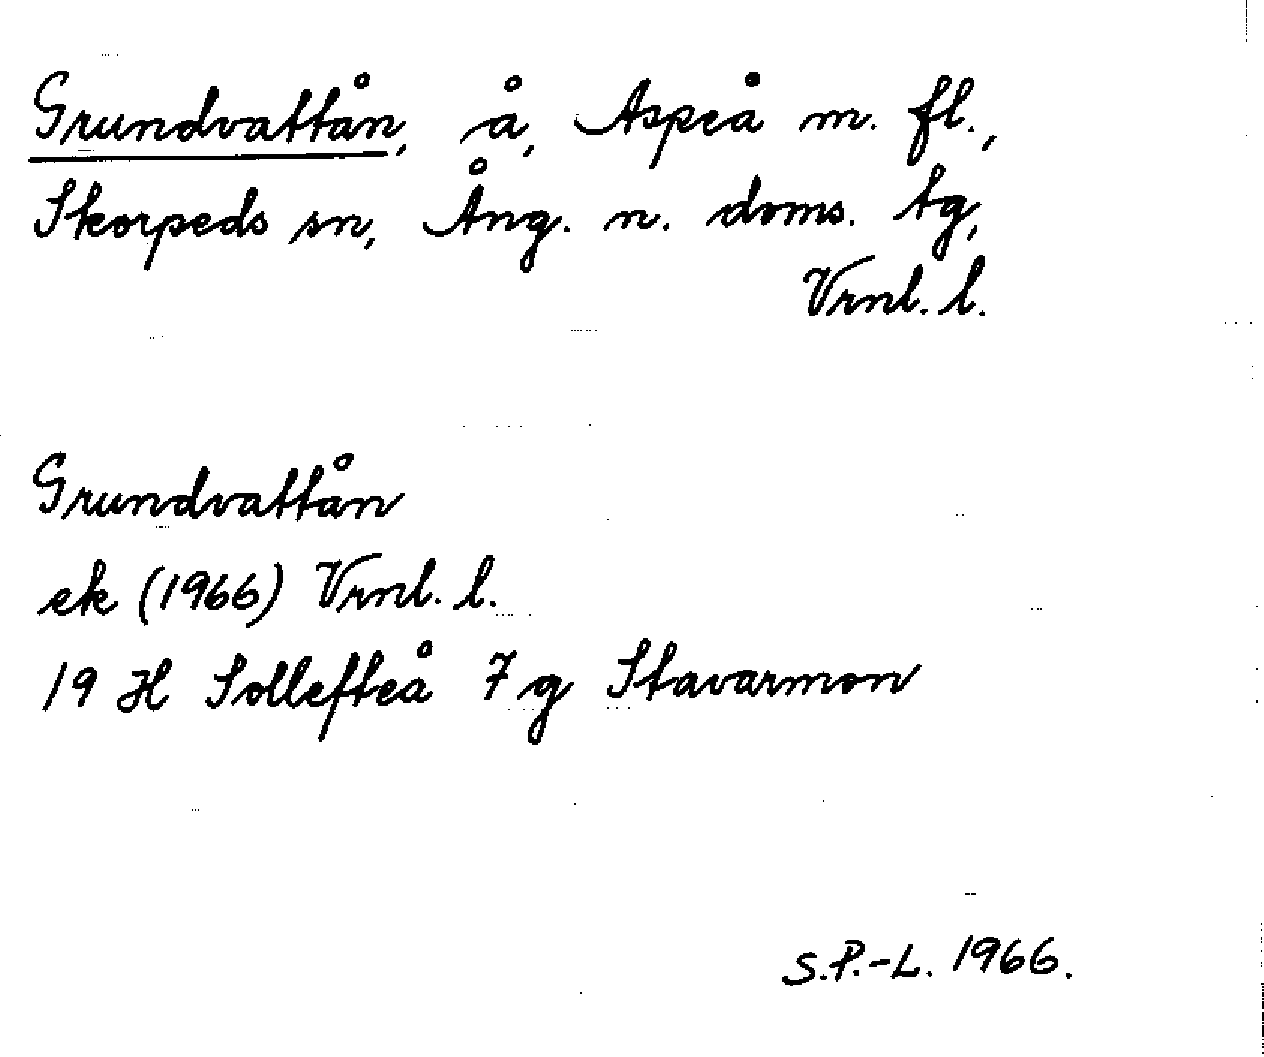 Grundvattån, å, Aspeå m. fl.,
Skorpeds sn, Ång. n. doms. tg,
Vrnl. l.
Grundvattån
ek (1966) Vrnl. l.
19 H Sollefteå 7 g Stavarmon
S.P.-L. 1966.